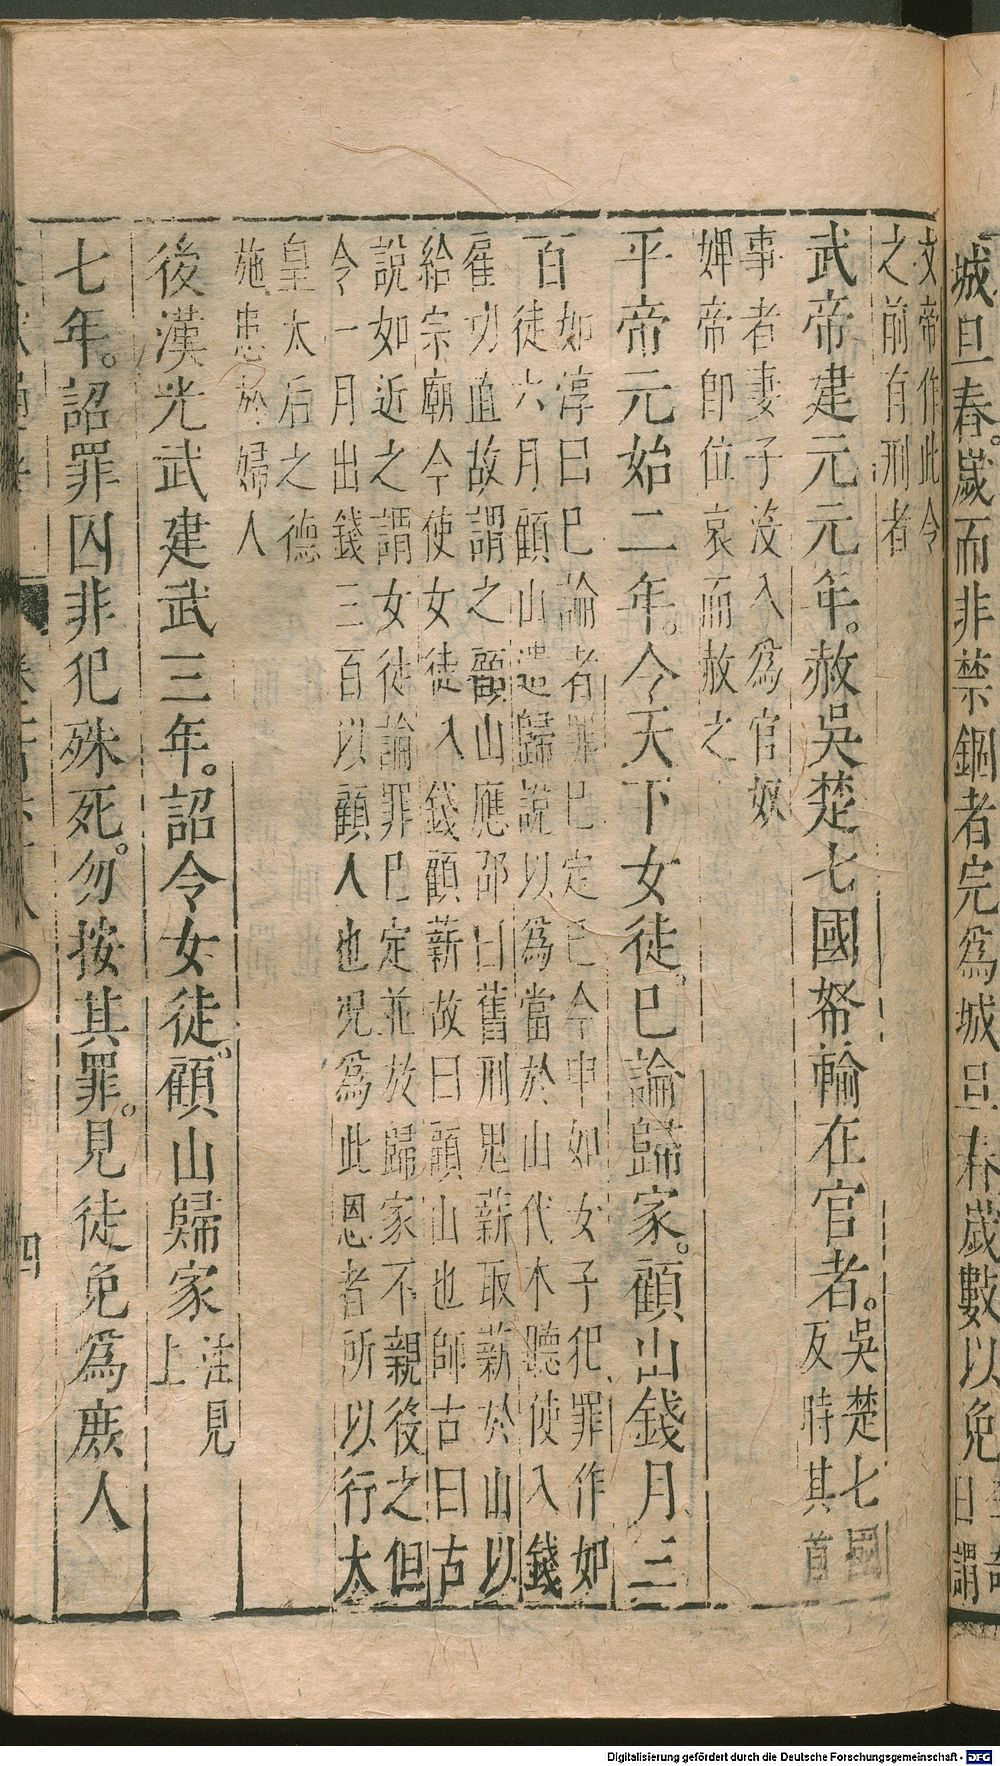 城旦舂歲而非禁錮者完爲城旦舂歲數以免
曰謂
文帝作此令
之前有刑者
武帝建元元年赦吳楚七國帑輸在官者吳楚七國
反時其首
事者妻子沒入爲官奴
婢帝即位哀而赦之
平帝元始二年令天下女徒巳論歸家顧山錢月三
百如淳曰巳論者罪巳定巳令甲如女子犯罪作如
徒六月顧山遣歸說以爲當於山伐木聽使入錢
雇功直故謂之顧山應邵曰舊刑鬼薪取薪於山以
給宗廟今使女徒入錢顧薪故曰顧山也師古曰古
說如近之謂女徒論罪巳定並放歸家不親役之但
令一月出錢三百以顧人也况爲此恩者所以行太
皇太后之德
施惠於婦人
後漢光武建武三年詔令女徒顧山歸家注見
上
七年詔罪囚非犯殊死勿按其罪見徒免爲庶人
四
Digitalisierung gefördert durch die Deutsche Forschungsgemeinschaft - DFG